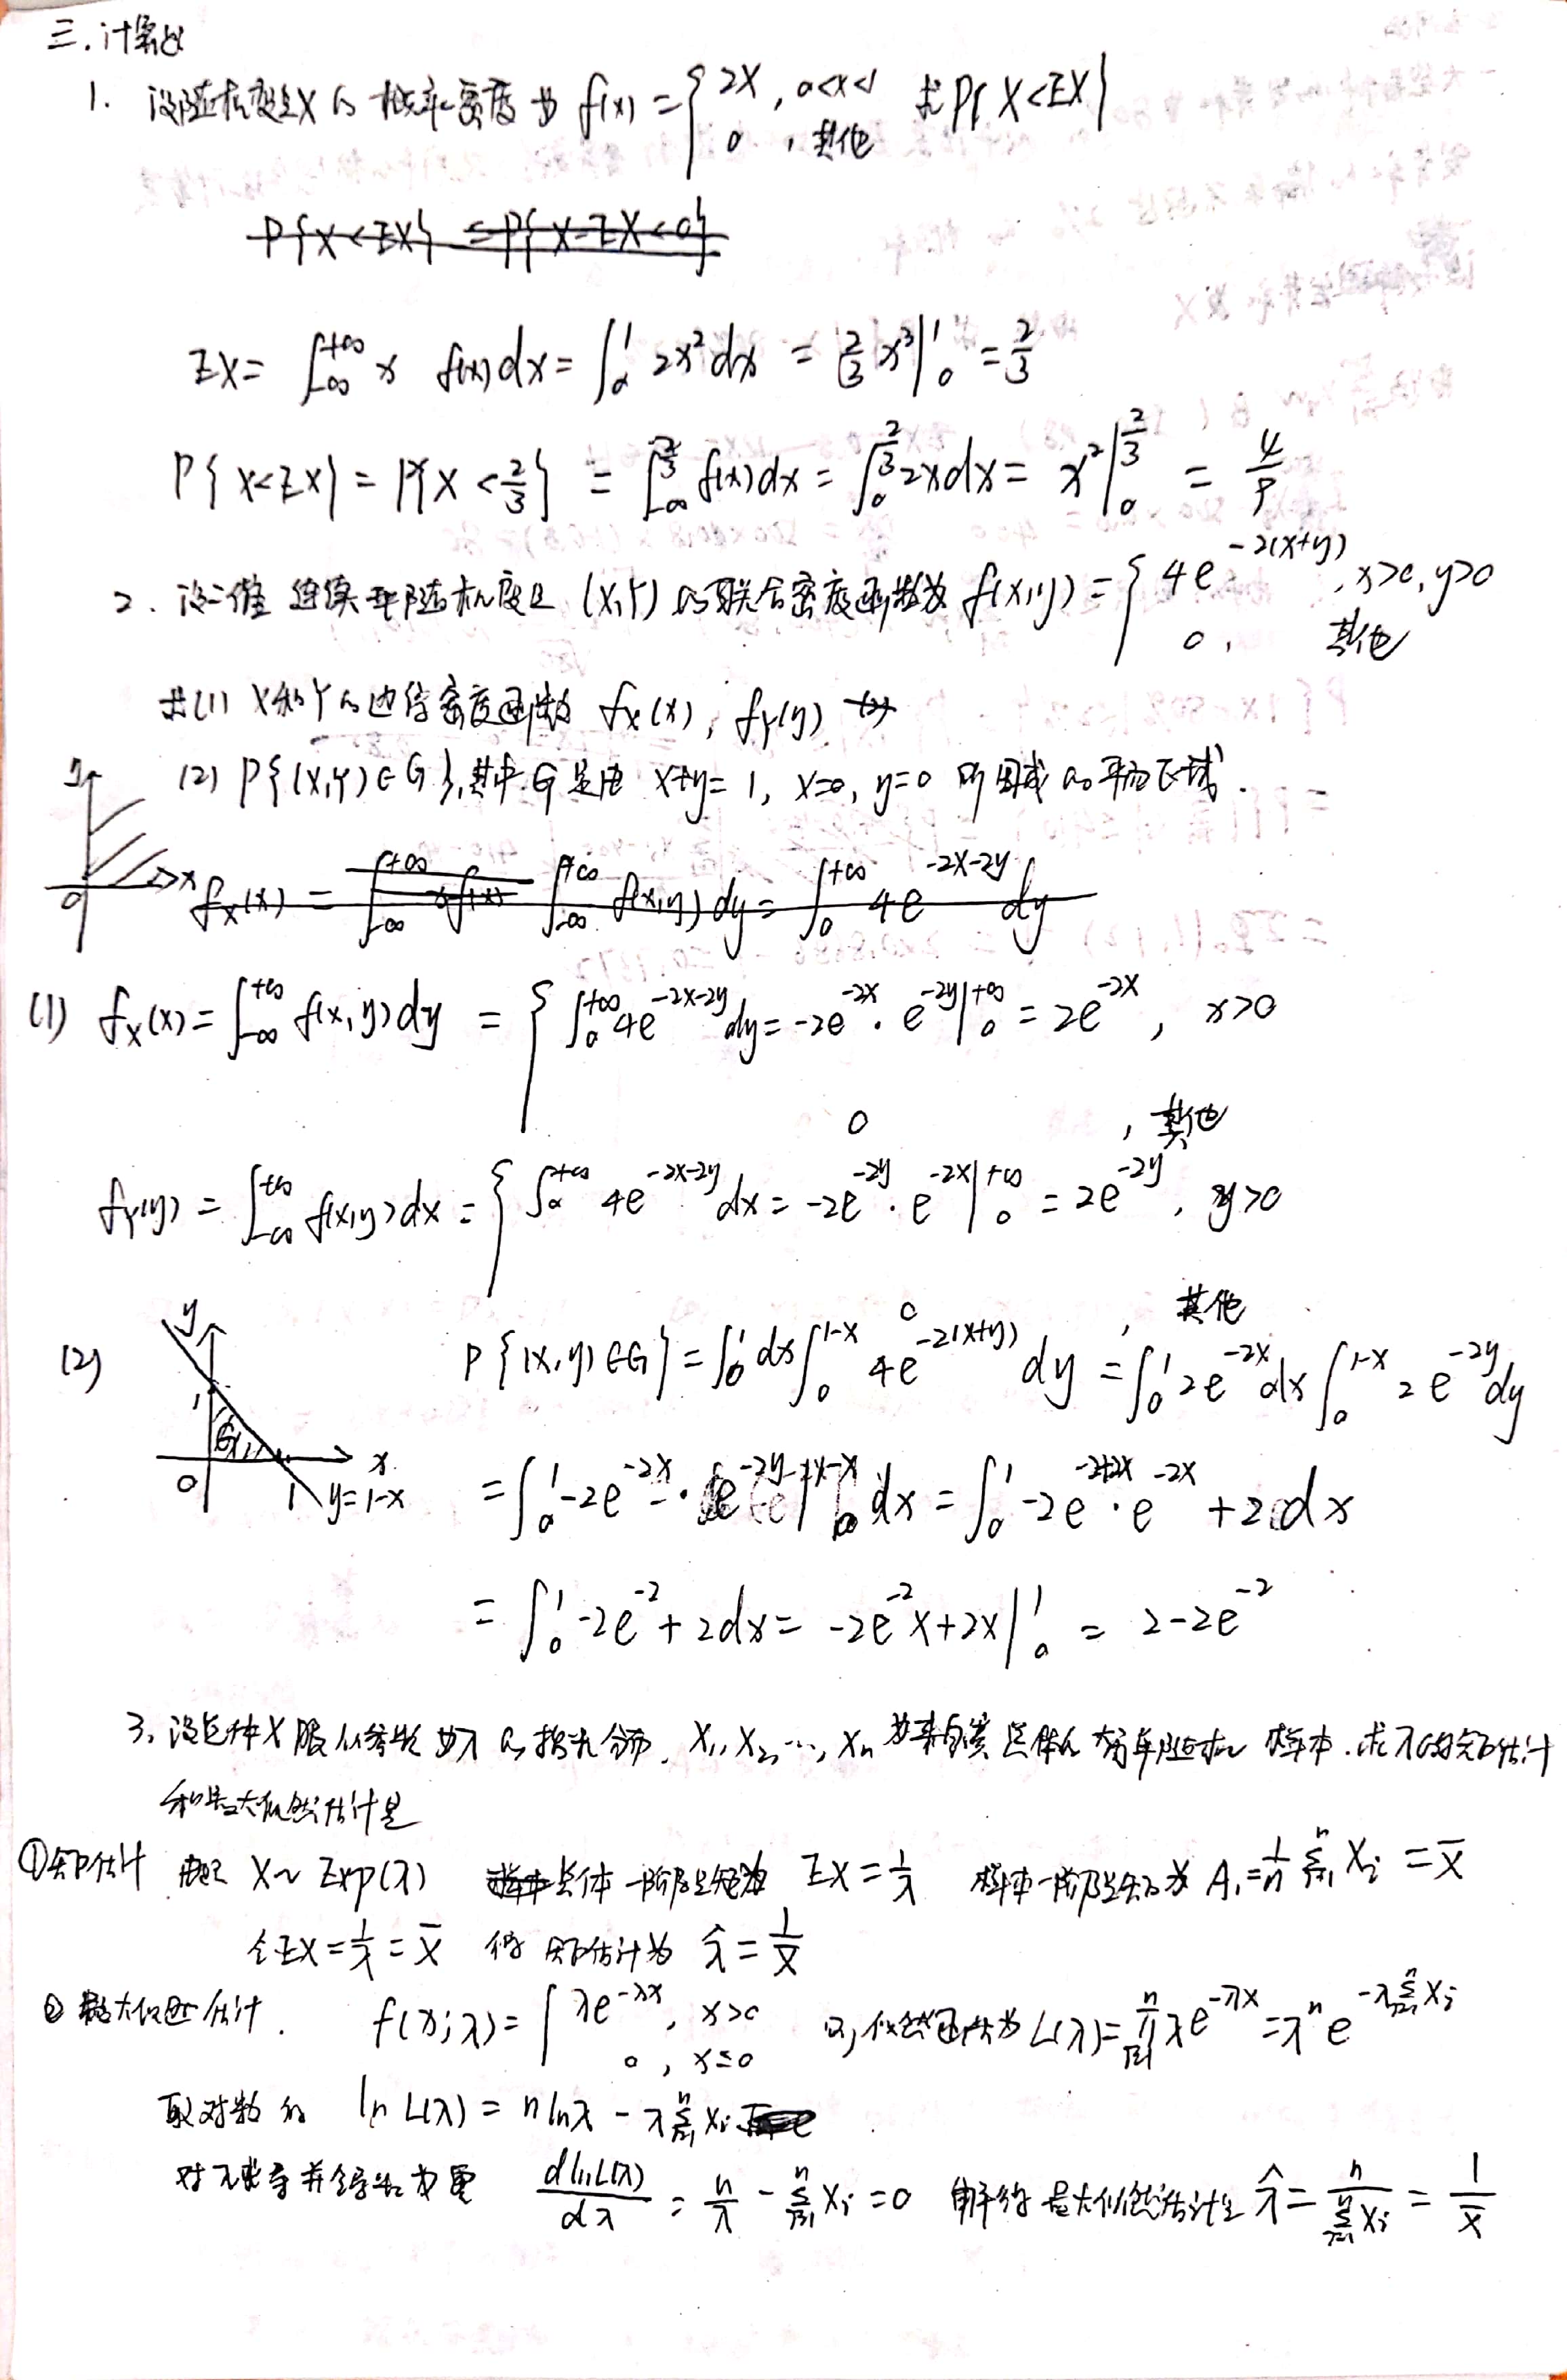 三.计算题
1. 设随机变量X的概率密度为 f(x) = { 2X, 0<x<1 求P{X<EX}
0, 其他
P{X<EX} = P{X-EX<0}
EX = ∫_{-∞}^{+∞} x f(x)dx = ∫_0^1 2x²dx = 2/3 x³|_0^1 = 2/3
P{X<EX} = P{X<2/3} = ∫_{-∞}^{2/3} f(x)dx = ∫_0^{2/3} 2xdx = x²|_0^{2/3} = 4/9
2. 设二维连续型随机变量 (X,Y) 的联合密度函数为 f(x,y) = { 4e^{-2(x+y)}, x>0, y>0
0, 其他
求(1) X和Y的边缘密度函数 f_X(x), f_Y(y) (2)
(2) P{(X,Y)∈G},其中G是由 x+y=1, x=0, y=0 所围成的平面区域.
y x 0
f_X(x) = ∫_{-∞}^{+∞} x f(x) ∫_{-∞}^{+∞} f(x,y)dy = ∫_0^{+∞} 4e^{-2x-2y} dy
(1) f_X(x) = ∫_{-∞}^{+∞} f(x,y)dy = { ∫_0^{+∞} 4e^{-2x-2y}dy = -2e^{-2x}·e^{-2y}|_0^{+∞} = 2e^{-2x}, x>0
0 , 其他
f_Y(y) = ∫_{-∞}^{+∞} f(x,y)dx = { ∫_0^{+∞} 4e^{-2x-2y}dx = -2e^{-2y}·e^{-2x}|_0^{+∞} = 2e^{-2y}, y>0
0 , 其他
(2) y 1 G 0 1 x y=1-x
P{(X,y)∈G} = ∫_0^1 dx∫_0^{1-x} 4e^{-2(x+y)} dy = ∫_0^1 2e^{-2x}dx∫_0^{1-x} 2e^{-2y}dy
= ∫_0^1 -2e^{-2x}·e^{-2y}|_0^{1-x} dx = ∫_0^1 -2e^{-2+2x}·e^{-2x}+2dx
= ∫_0^1 -2e^{-2}+2dx = -2e^{-2}x+2x|_0^1 = 2-2e^{-2}
3. 设总体X服从参数为λ的指数分布, X₁, X₂, ..., Xn 为来自该总体的简单随机样本.求λ的矩估计
和最大似然估计量
①矩估计 X~Exp(λ) 总体一阶原点矩为 EX=1/λ 样本一阶原点矩为 A₁=1/n ∑_{i=1}^n Xi = X̄
令EX=1/λ=X̄ 得 矩估计为 λ̂=1/X̄
② 最大似然估计. f(x;λ) = { λe^{-λx}, x>0 则似然函数为 L(λ)=∏_{i=1}^n λe^{-λx}=λ^n e^{-λ∑_{i=1}^n Xi}
0, x≤0
取对数得 ln L(λ) = nlnλ - λ∑_{i=1}^n Xi
对λ求导并令导数为零 dlnL(λ)/dλ = n/λ - ∑_{i=1}^n Xi = 0 解得 最大似然估计量 λ̂ = n/∑_{i=1}^n Xi = 1/X̄